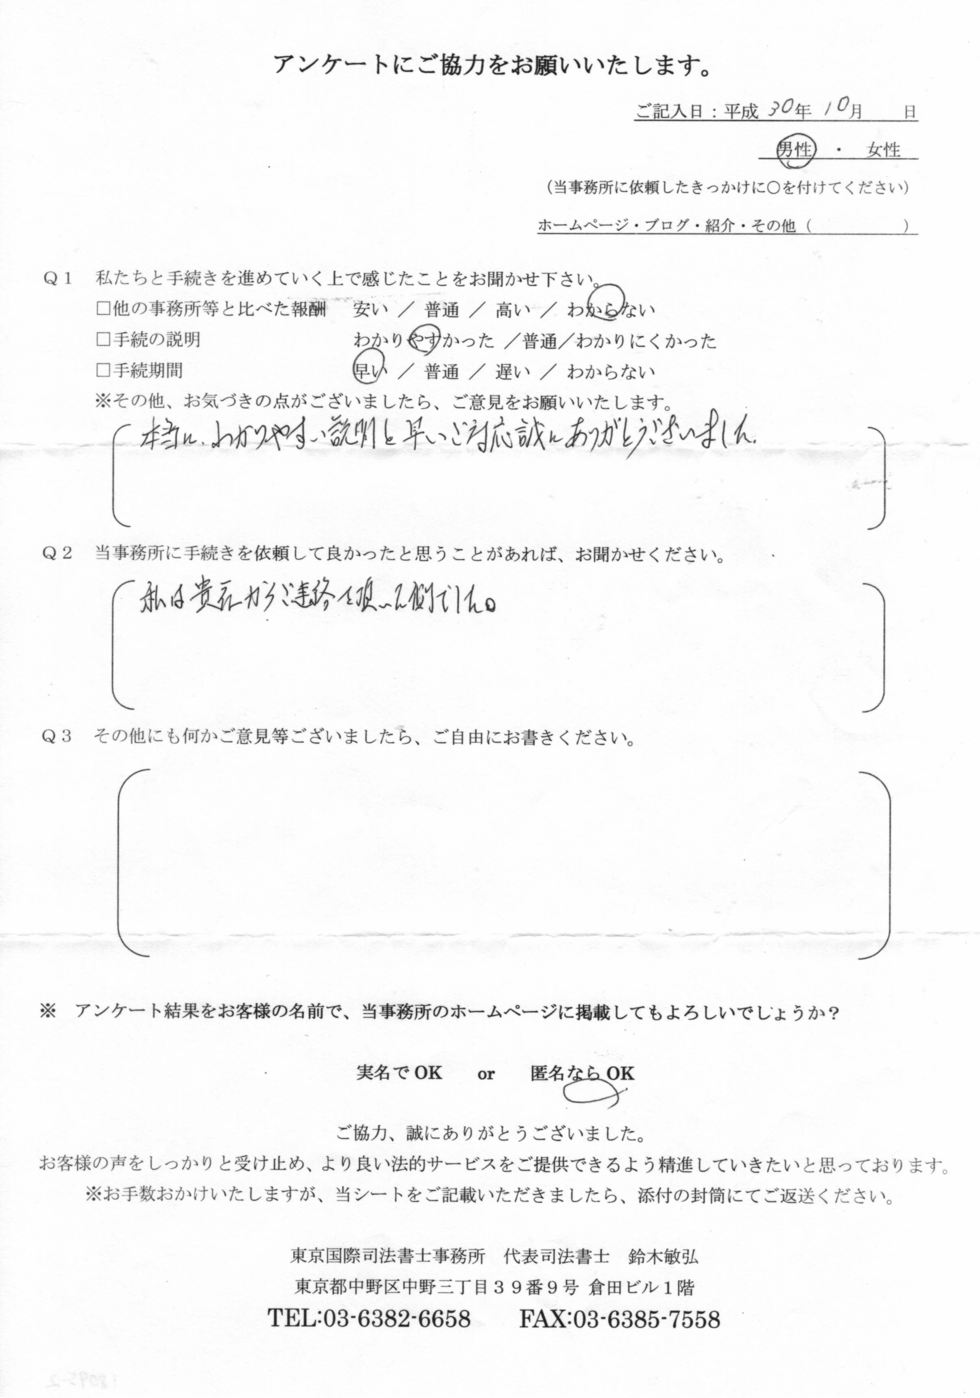 アンケートにご協力をお願いいたします。
ご記入日：平成 30年 10月　　日
男性　・　女性
（当事務所に依頼したきっかけに○を付けてください）
ホームページ・ブログ・紹介・その他（　　　　　）
Ｑ１　私たちと手続きを進めていく上で感じたことをお聞かせ下さい。
□他の事務所等と比べた報酬　安い ／ 普通 ／ 高い ／ わからない
□手続の説明　わかりやすかった ／普通／わかりにくかった
□手続期間　早い ／ 普通 ／ 遅い ／ わからない
※その他、お気づきの点がございましたら、ご意見をお願いいたします。
本当に、わかりやすい説明と早いご対応誠にありがとうございました。
Ｑ２　当事務所に手続きを依頼して良かったと思うことがあれば、お聞かせください。
私は貴 からご連絡を頂いた側でした。
Ｑ３　その他にも何かご意見等ございましたら、ご自由にお書きください。
※　アンケート結果をお客様の名前で、当事務所のホームページに掲載してもよろしいでしょうか？
実名でOK　　or　　匿名ならOK
ご協力、誠にありがとうございました。
お客様の声をしっかりと受け止め、より良い法的サービスをご提供できるよう精進していきたいと思っております。
※お手数おかけいたしますが、当シートをご記載いただきましたら、添付の封筒にてご返送ください。
東京国際司法書士事務所　代表司法書士　鈴木敏弘
東京都中野区中野三丁目３９番９号 倉田ビル１階
TEL:03-6382-6658　　FAX:03-6385-7558